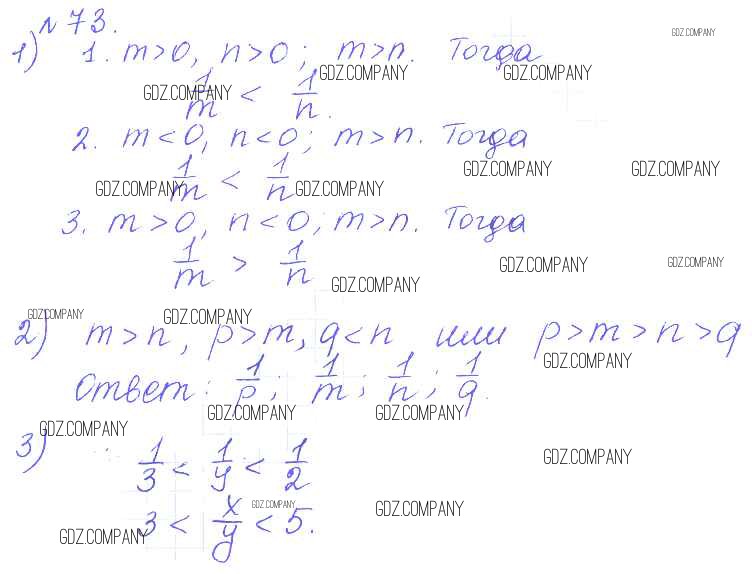 № 73.
GDZ.COMPANY
1) 1. m>0, n>0; m>n. Тогда
GDZ.COMPANY GDZ.COMPANY
GDZ.COMPANY
1/m < 1/n.
2. m<0, n<0; m>n. Тогда
GDZ.COMPANY GDZ.COMPANY
1/m < 1/n
GDZ.COMPANY GDZ.COMPANY
3. m>0, n<0; m>n. Тогда
1/m > 1/n
GDZ.COMPANY GDZ.COMPANY
GDZ.COMPANY
GDZ.COMPANY GDZ.COMPANY
2) m>n, p>m, q<n или p>m>n>q
GDZ.COMPANY
Ответ: 1/p; 1/m; 1/n; 1/q.
GDZ.COMPANY GDZ.COMPANY
GDZ.COMPANY
3) 1/3 < 1/y < 1/2
GDZ.COMPANY
GDZ.COMPANY GDZ.COMPANY
3 < x/y < 5.
GDZ.COMPANY